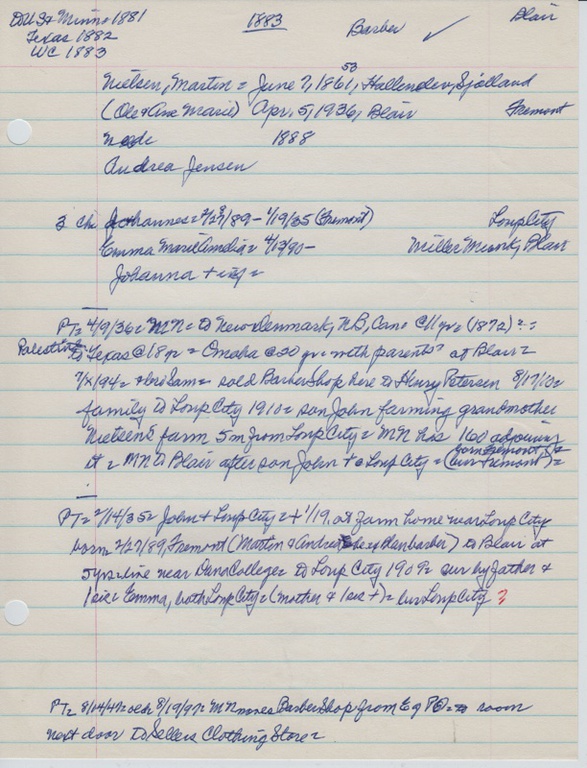 DU St Minn 1881 1883 Barber ✓ Blair
Texas 1882
WC 1883
53
Nielsen, Martin = June 7, 1861, Hallenslev, Sjolland
(Ole & Ane Marie) Apr. 5, 1936, Blair Fremont
1888
Andrea Jensen
3 chi Johannes = 2/27/89 - 1/19/35 (Fremont) Loup City
Emma Marie Amelia = 4/13/90 - Miller Blair
Johanna + inf =
PT = 4/9/36 = MN = to New Denmark, NB, Cana @ 11 yr = (1872) ? =
Palestine to Texas @ 18 yr = Omaha @ 20 yr = with parents? at Blair =
7/x/94 = + bro Sam = sold Barber Shop here to Henry Petersen 8/17/10 =
family to Loup City 1910 = son John farming grandmother
Nielsen's farm 5 m from Loup City = MN has 160 adjoining
it = MN to Blair after son John + @ Loup City = (born Fremont)
(bur Fremont) =
PT = 2/14/35 = John + Loup City = + 1/19, at farm home near Loup City
born 2/27/89, Fremont (Martin & Andrea barber) to Blair at
5 yrs = live near Dana College = to Loup City 1909 = sur by father &
1 sis = Emma, both Loup City = (mother & 1 sis +) = bur Loup City ?
PT = 8/14/47 = 8/19/97 = MN moves Barber Shop from E of PO = to room
next door to Sellers Clothing Store =